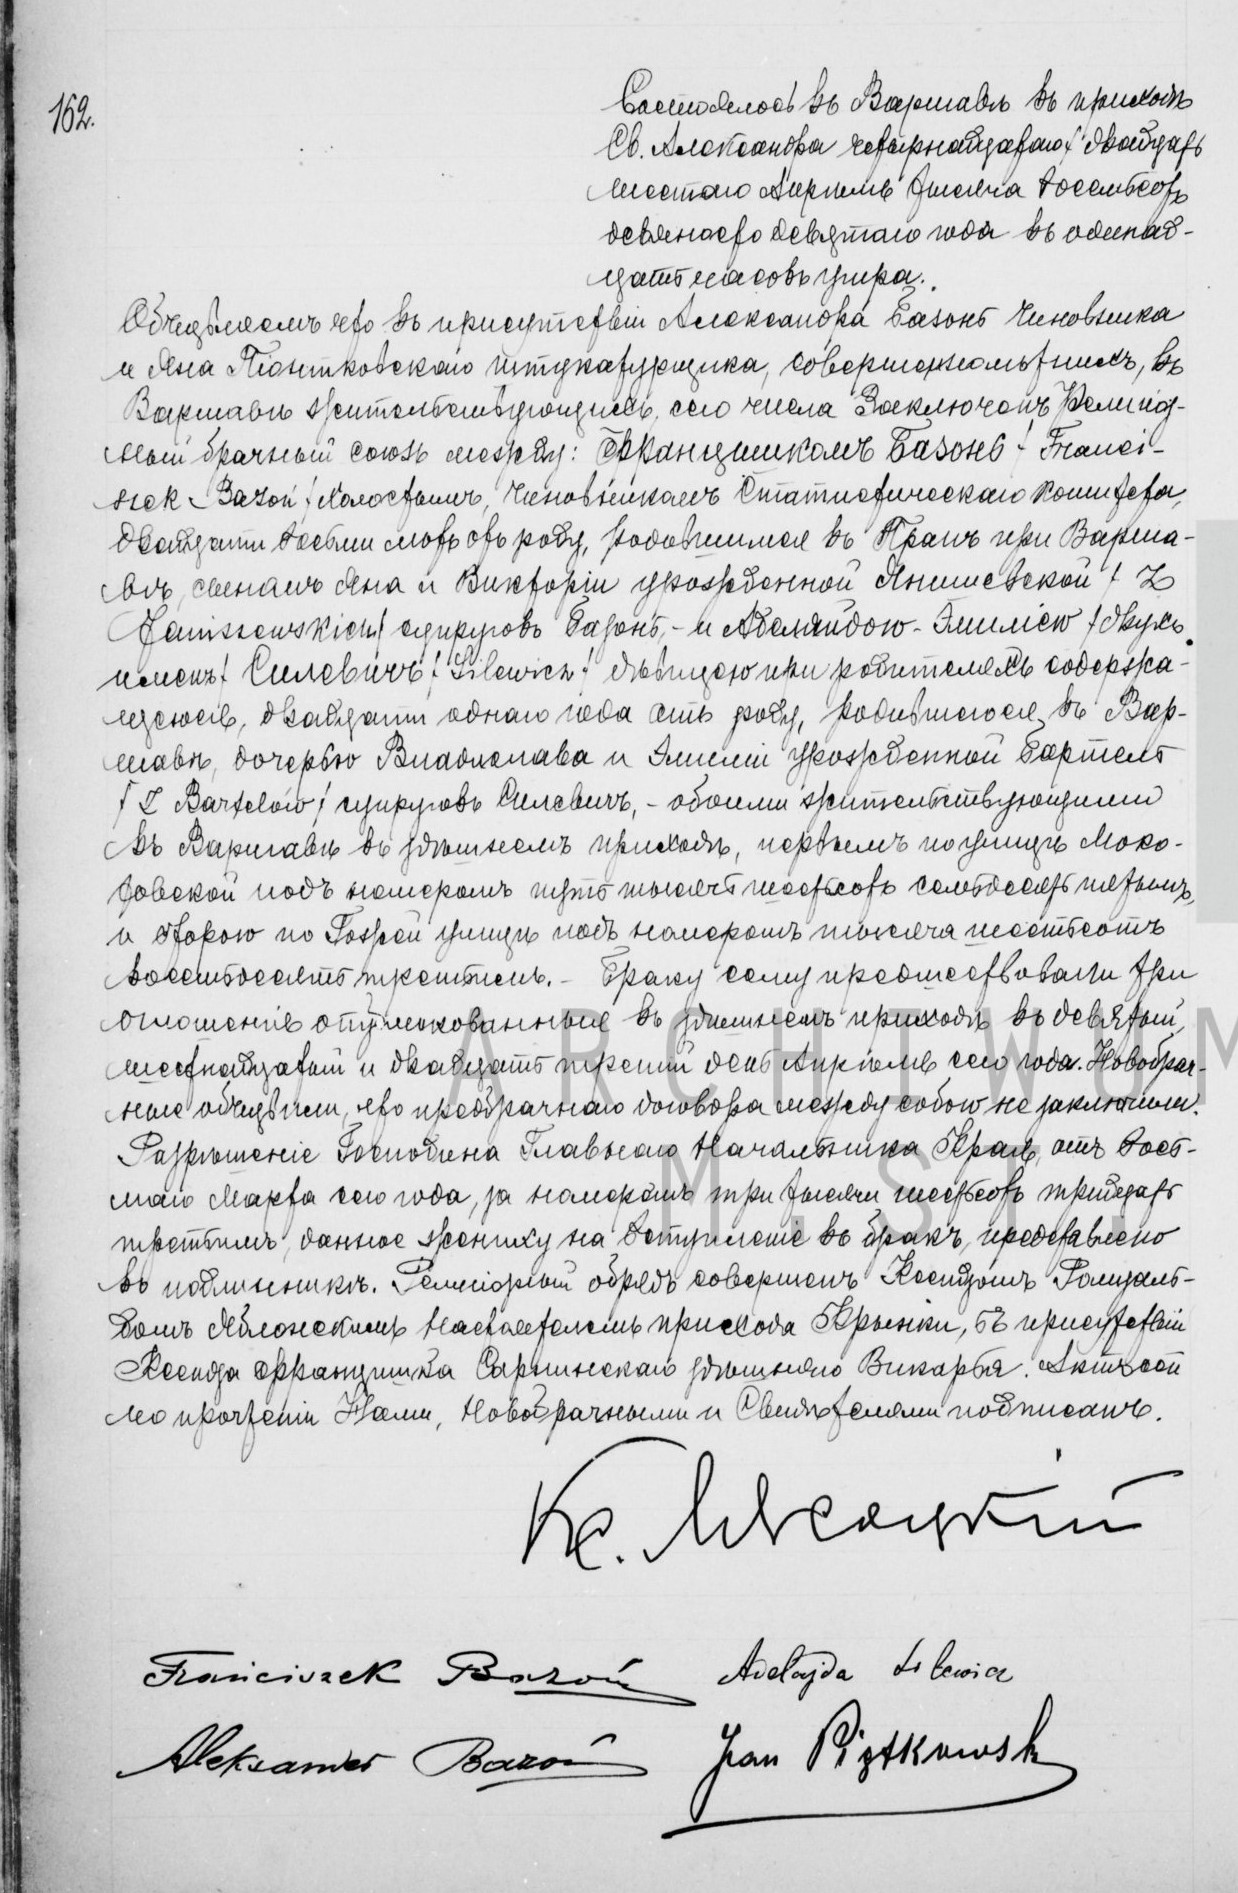 162.
Состоялось въ Варшавѣ въ приходѣ
Св. Александра четырнадцатаго / двадцать
шестаго Апрѣля тысяча восемьсотъ
девяносто девятаго года въ одинад-
цать часовъ утра.
Объявляемъ что въ присутствіи Александра Базонь чиновника
и Яна Піонтковскаго штукатурщика, совершеннолѣтнихъ, въ
Варшавѣ жительствующихъ, сего числа заключенъ Религіоз-
ный брачный союзъ между: Францишкомъ Базонь / Franci-
szek Bazoń / холостымъ, чиновникомъ Статистическаго Комитета,
двадцати восьми лѣтъ отъ роду, родившимся въ Прагѣ при Варша-
вѣ, сыномъ Яна и Викторіи урожденной Янишевской / Z
Janiszewskich / супруговъ Базонь, - и Аделяидою-Эмиліею / двухъ
именъ / Силевичъ / Silewicz / дѣвицею при родителяхъ содержа-
щеюся, двадцати одного года отъ роду, родившеюся въ Вар-
шавѣ, дочерью Владислава и Эмиліи урожденной Бартель
/ Z Bartelów / супруговъ Силевичъ, - обоими жительствующими
въ Варшавѣ въ здѣшнемъ приходѣ, первымъ по улицѣ Моко-
товской подъ номеромъ пять тысячъ шестьсотъ семьдесятъ пятымъ,
и второю по Гожей улицѣ подъ номеромъ тысяча шестьсотъ
восемьдесятъ третьимъ. - Браку сему предшествовали три
оглашенія опубликованныя въ здѣшнемъ приходѣ въ девятый,
шестнадцатый и двадцать третій день Апрѣля сего года. Новобрач-
ные объявили, что предбрачнаго договора между собою не заключили.
Разрѣшеніе Господина Главнаго Начальника Края, отъ вось-
маго Марта сего года, за номеромъ три тысячи шестьсотъ тридцать
третьимъ, данное жениху на вступленіе въ бракъ, представлено
въ подлинникѣ. Религіозный обрядъ совершенъ Ксендзомъ Ромуаль-
домъ Яблонскимъ Настоятелемъ прихода Крынки, въ присутствіи
Ксендза Францишка Сарнинскаго здѣшняго Викарія. Актъ сей
по прочтеніи Нами, Новобрачными и Свидѣтелями подписанъ.
Кс.
Franciszek Bazoń Adelajda Silewicz
Aleksander Bazoń Jan Piątkowski
ARCHIWUM
M. ST.